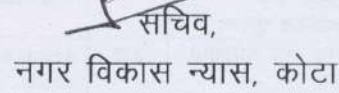 सचिव,
नगर विकास न्यास, कोटा